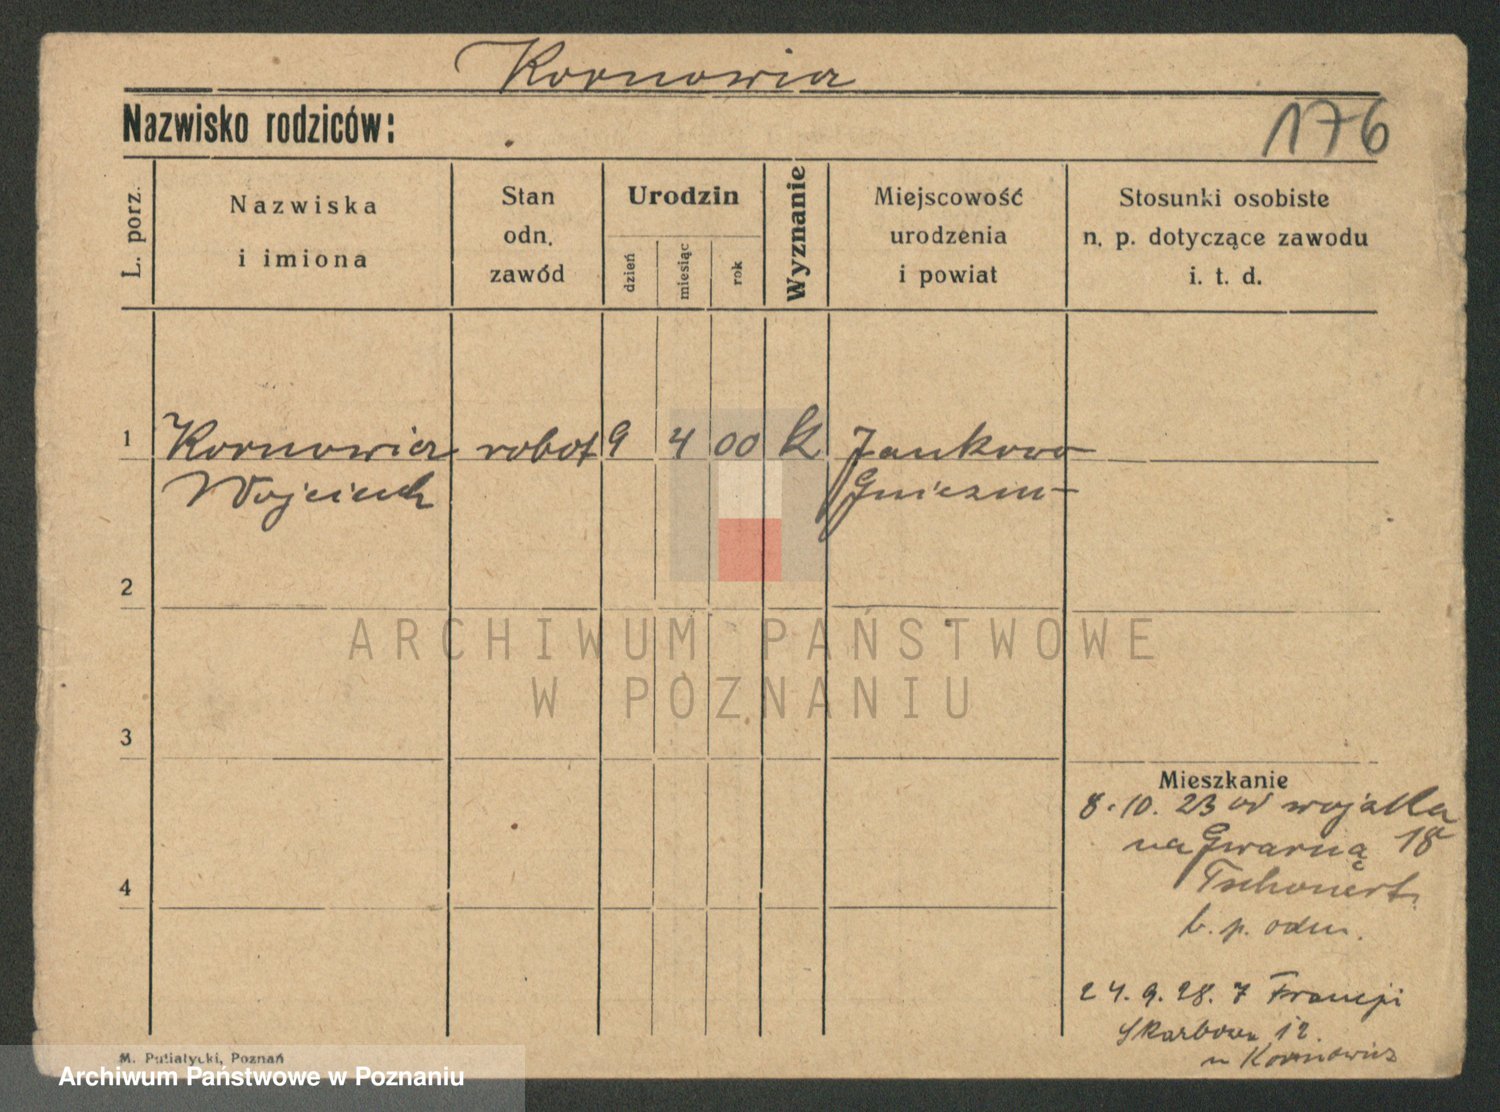 Kornowicz
Nazwisko rodziców:
176
L. porz.
Nazwiska
i imiona
Stan
odn.
zawód
Urodzin
dzień
miesiąc
rok
Wyznanie
Miejscowość
urodzenia
i powiat
Stosunki osobiste
n. p. dotyczące zawodu
i. t. d.
1
Kornowicz robot 9 4 00 k Jankowo
Wojciech Gniezn
2
ARCHIWUM PAŃSTWOWE
W POZNANIU
3
Mieszkanie
8.10.23 od wojska
na Gwarną 18
Tschonert
b. p. odm.
4
24.9.28. z Francji
Skarbowa 12.
u Kornowicz
M. Putiatycki, Poznań
Archiwum Państwowe w Poznaniu